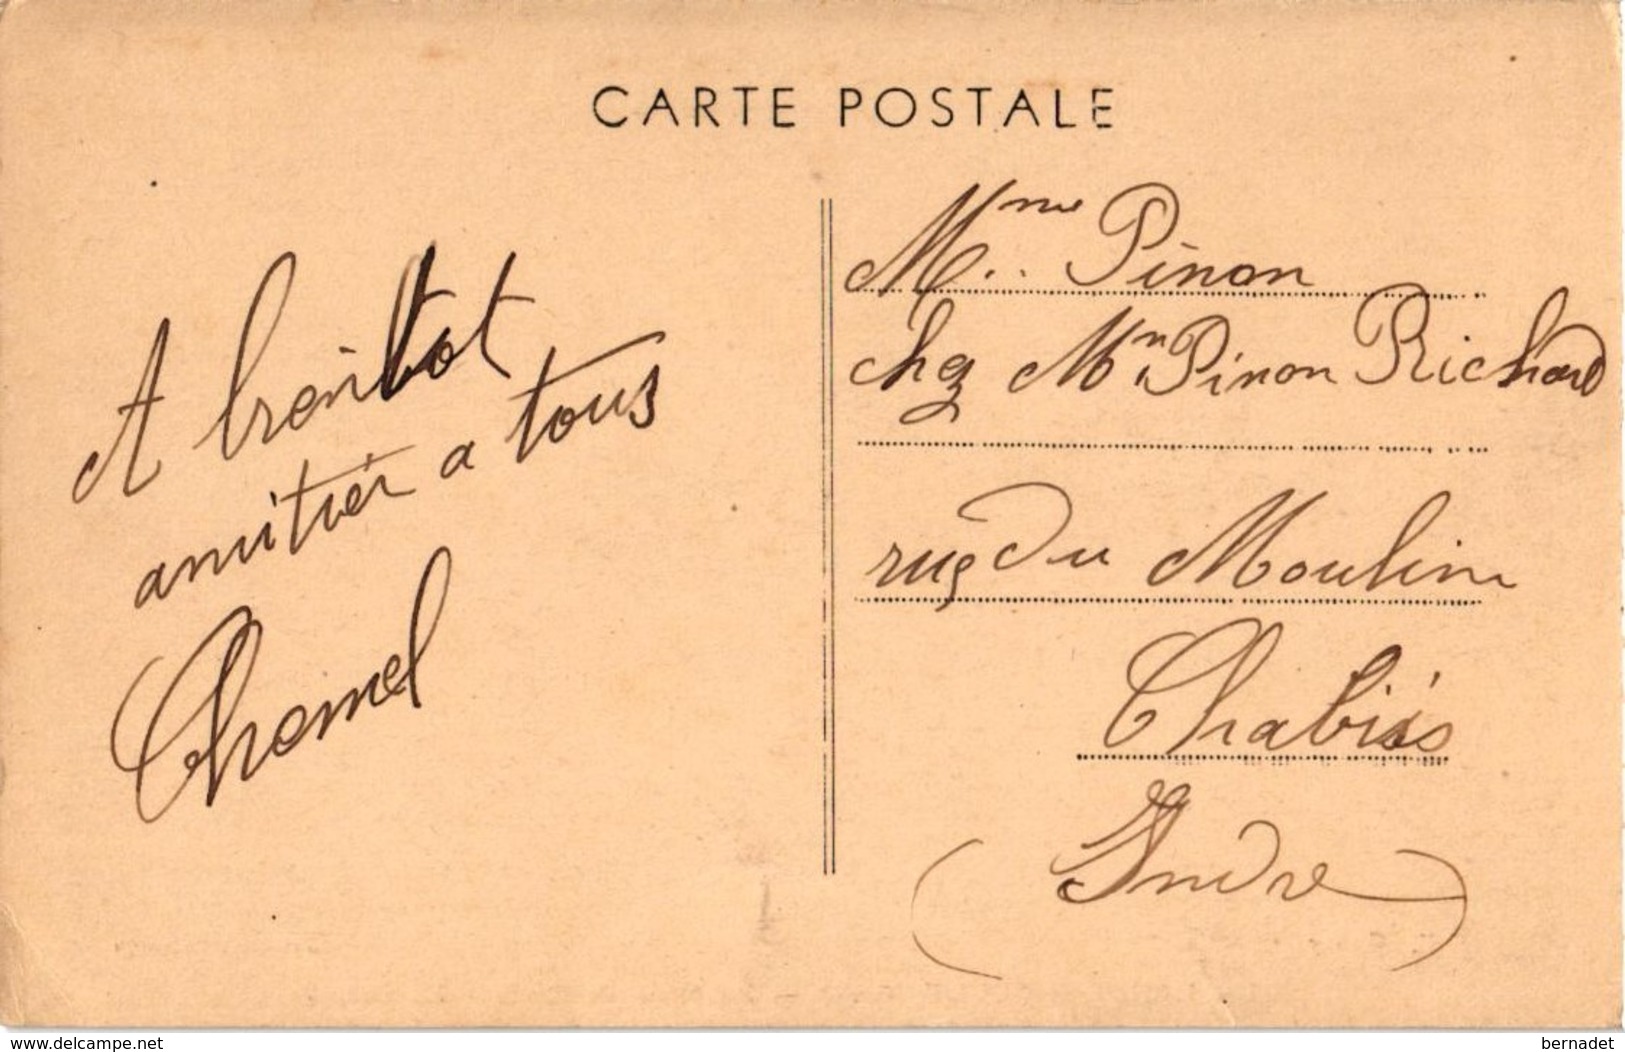 CARTE POSTALE
A bientot
amitiér a tous
Chemel
Mme Pinon
chez Mr Pinon Richard
rue du Moulin
Chabris
(Indre)
www.delcampe.net
bernadet